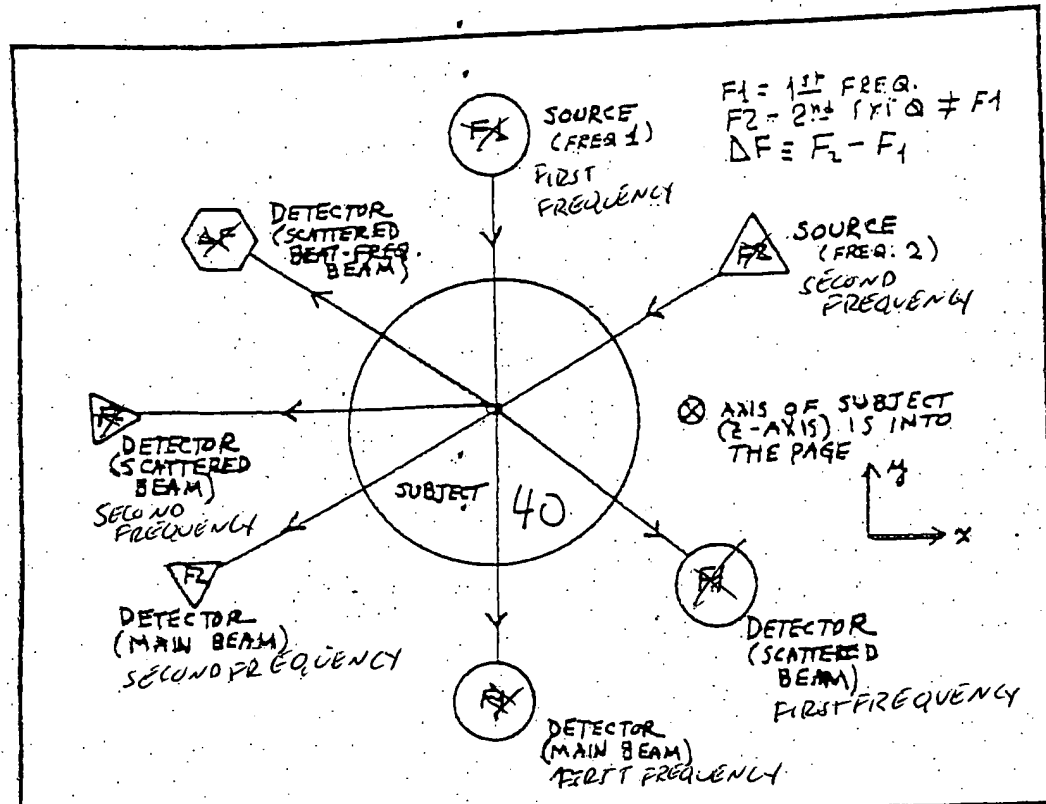 F1 = 1st FREQ.
F2 = 2nd
≠ F1
ΔF ≡ F₂ - F₁
F1
SOURCE
(FREQ 1)
FIRST
FREQUENCY
ΔF
DETECTOR
(SCATTERED
BEAT-FREQ.
BEAM)
F2
SOURCE
(FREQ. 2)
SECOND
FREQUENCY
DETECTOR
(SCATTERED
BEAM)
SECOND
FREQUENCY
⊗ AXIS OF SUBJECT
(Z-AXIS) IS INTO
THE PAGE
y
x
SUBJECT
40
F2
DETECTOR
(MAIN BEAM)
SECOND FREQUENCY
F1
DETECTOR
(SCATTERED
BEAM)
FIRST FREQUENCY
DETECTOR
(MAIN BEAM)
FIRST FREQUENCY